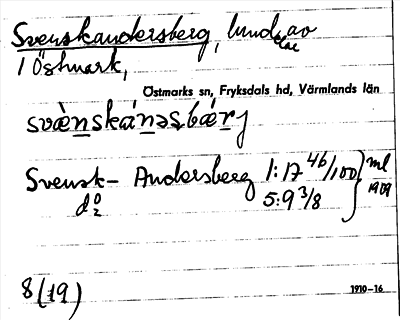 Svenskandersberg, lund av
1 Östmark,
Östmarks sn, Fryksdals hd, Värmlands län
svènskánəsbérj
Svensk- Andersberg 1:17 46/100 } ml
do 2 5:9 3/8 1909
8(19)
1910-16